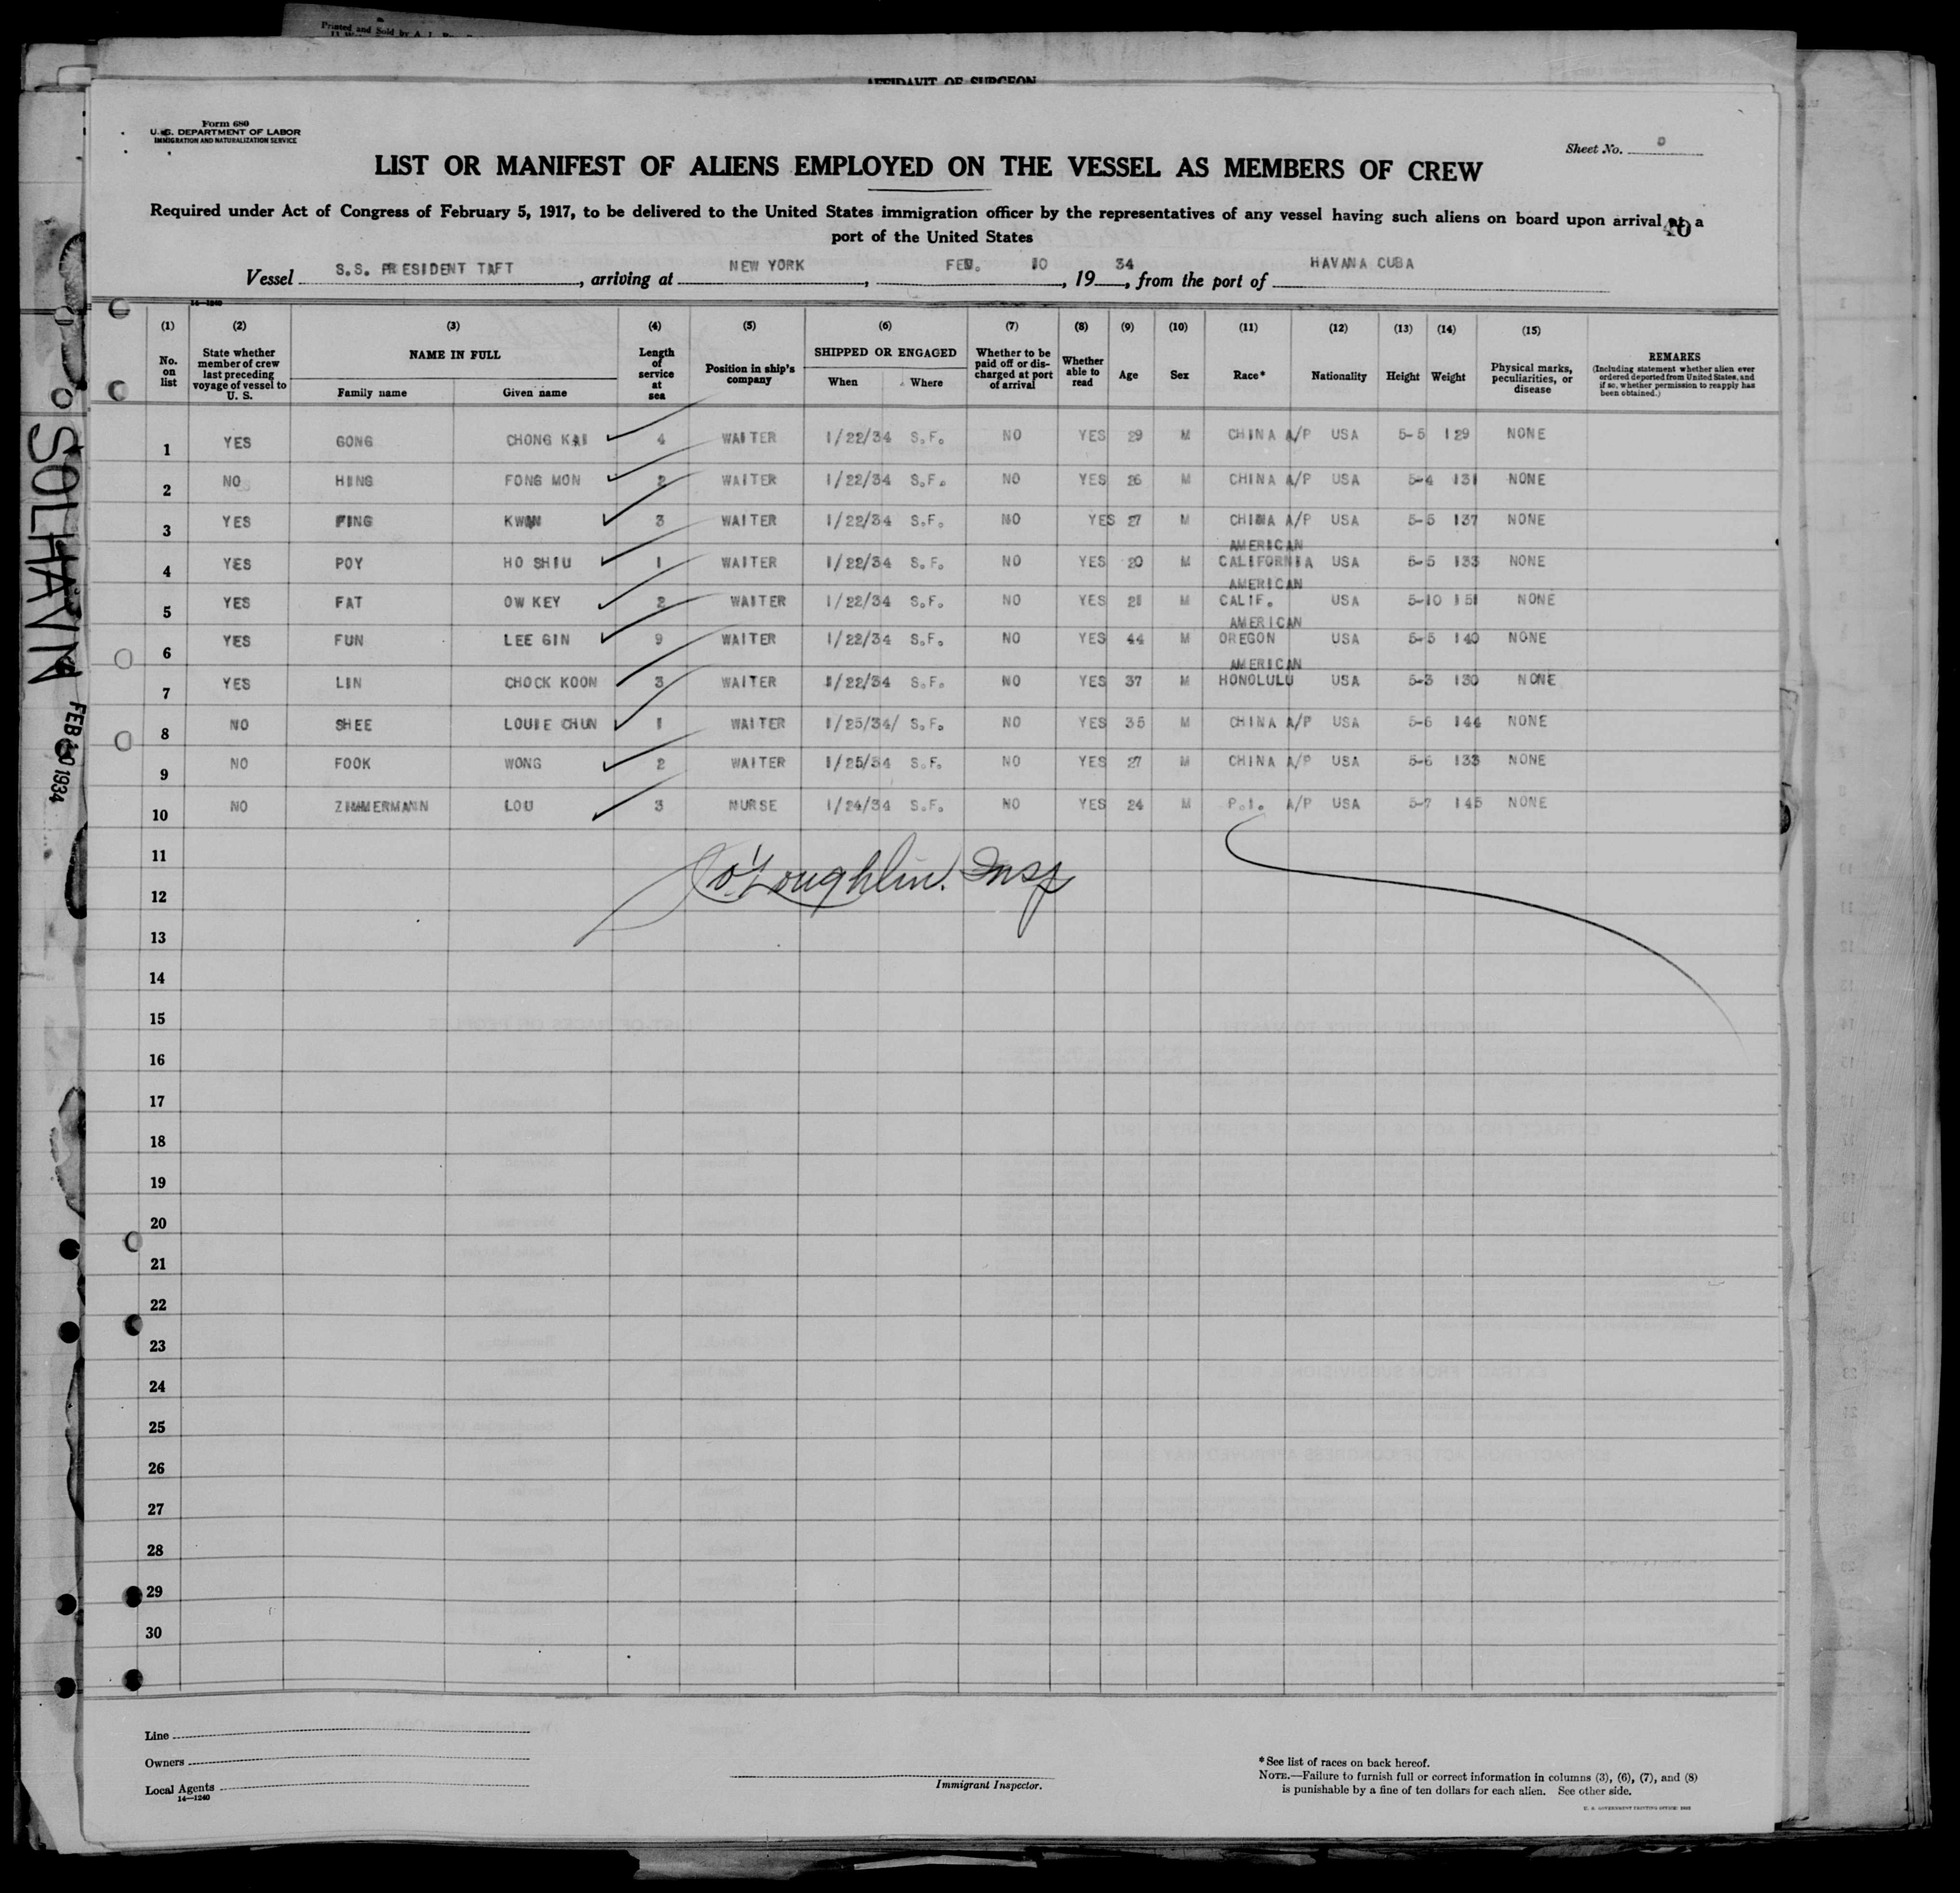 Printed and Sold by A. L.
AFFIDAVIT OF SURGEON
Form 680
U. S. DEPARTMENT OF LABOR
IMMIGRATION AND NATURALIZATION SERVICE
Sheet No.
LIST OR MANIFEST OF ALIENS EMPLOYED ON THE VESSEL AS MEMBERS OF CREW
Required under Act of Congress of February 5, 1917, to be delivered to the United States immigration officer by the representatives of any vessel having such aliens on board upon arrival at a
port of the United States
40
Vessel S.S. PRESIDENT TAFT, arriving at NEW YORK, FEB. 10, 1934, from the port of HAVANA CUBA
14—1240
(1) (2) (3) (4) (5) (6) (7) (8) (9) (10) (11) (12) (13) (14) (15)
No. on list
State whether member of crew last preceding voyage of vessel to U. S.
NAME IN FULL
Family name
Given name
Length of service at sea
Position in ship's company
SHIPPED OR ENGAGED
When
Where
Whether to be paid off or discharged at port of arrival
Whether able to read
Age
Sex
Race*
Nationality
Height
Weight
Physical marks, peculiarities, or disease
REMARKS
(Including statement whether alien ever ordered deported from United States, and if so, whether permission to reapply has been obtained.)
1 YES GONG CHONG KAI 4 WAITER 1/22/34 S.F. NO YES 29 M CHINA A/P USA 5-5 129 NONE
2 NO HING FONG MON 2 WAITER 1/22/34 S.F. NO YES 26 M CHINA A/P USA 5-4 131 NONE
3 YES FING KWAN 3 WAITER 1/22/34 S.F. NO YES 27 M CHINA A/P USA 5-5 137 NONE
AMERICAN
4 YES POY HO SHIU 1 WAITER 1/22/34 S.F. NO YES 20 M CALIFORNIA USA 5-5 133 NONE
AMERICAN
5 YES FAT OW KEY 2 WAITER 1/22/34 S.F. NO YES 21 M CALIF. USA 5-10 151 NONE
AMERICAN
6 YES FUN LEE GIN 9 WAITER 1/22/34 S.F. NO YES 44 M OREGON USA 5-5 140 NONE
AMERICAN
7 YES LIN CHOCK KOON 3 WAITER 1/22/34 S.F. NO YES 37 M HONOLULU USA 5-3 130 NONE
8 NO SHEE LOUIE CHUN 1 WAITER 1/25/34/ S.F. NO YES 35 M CHINA A/P USA 5-6 144 NONE
9 NO FOOK WONG 2 WAITER 1/25/34 S.F. NO YES 27 M CHINA A/P USA 5-6 133 NONE
10 NO ZIMMERMANN LOU 3 NURSE 1/24/34 S.F. NO YES 24 M P.I. A/P USA 5-7 145 NONE
11
O'Loughlin. Insp
12
13
14
15
16
17
18
19
20
21
22
23
24
25
26
27
28
29
30
Line
Owners
Local Agents
14—1240
Immigrant Inspector.
*See list of races on back hereof.
NOTE.—Failure to furnish full or correct information in columns (3), (6), (7), and (8)
is punishable by a fine of ten dollars for each alien. See other side.
SOLHAVN
FEB 10 1934